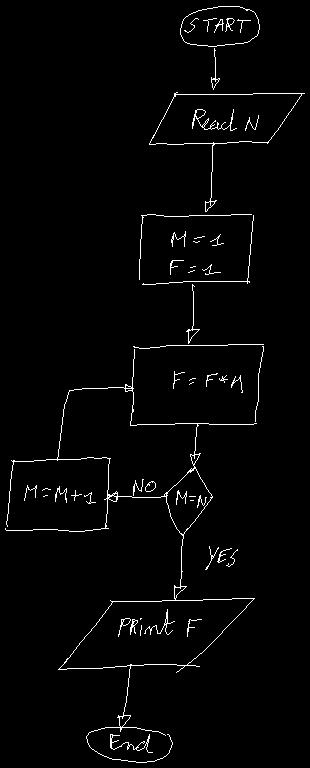 START
Read N
M=1
F=1
F=F*M
M=N
NO
M=M+1
YES
PRint F
End